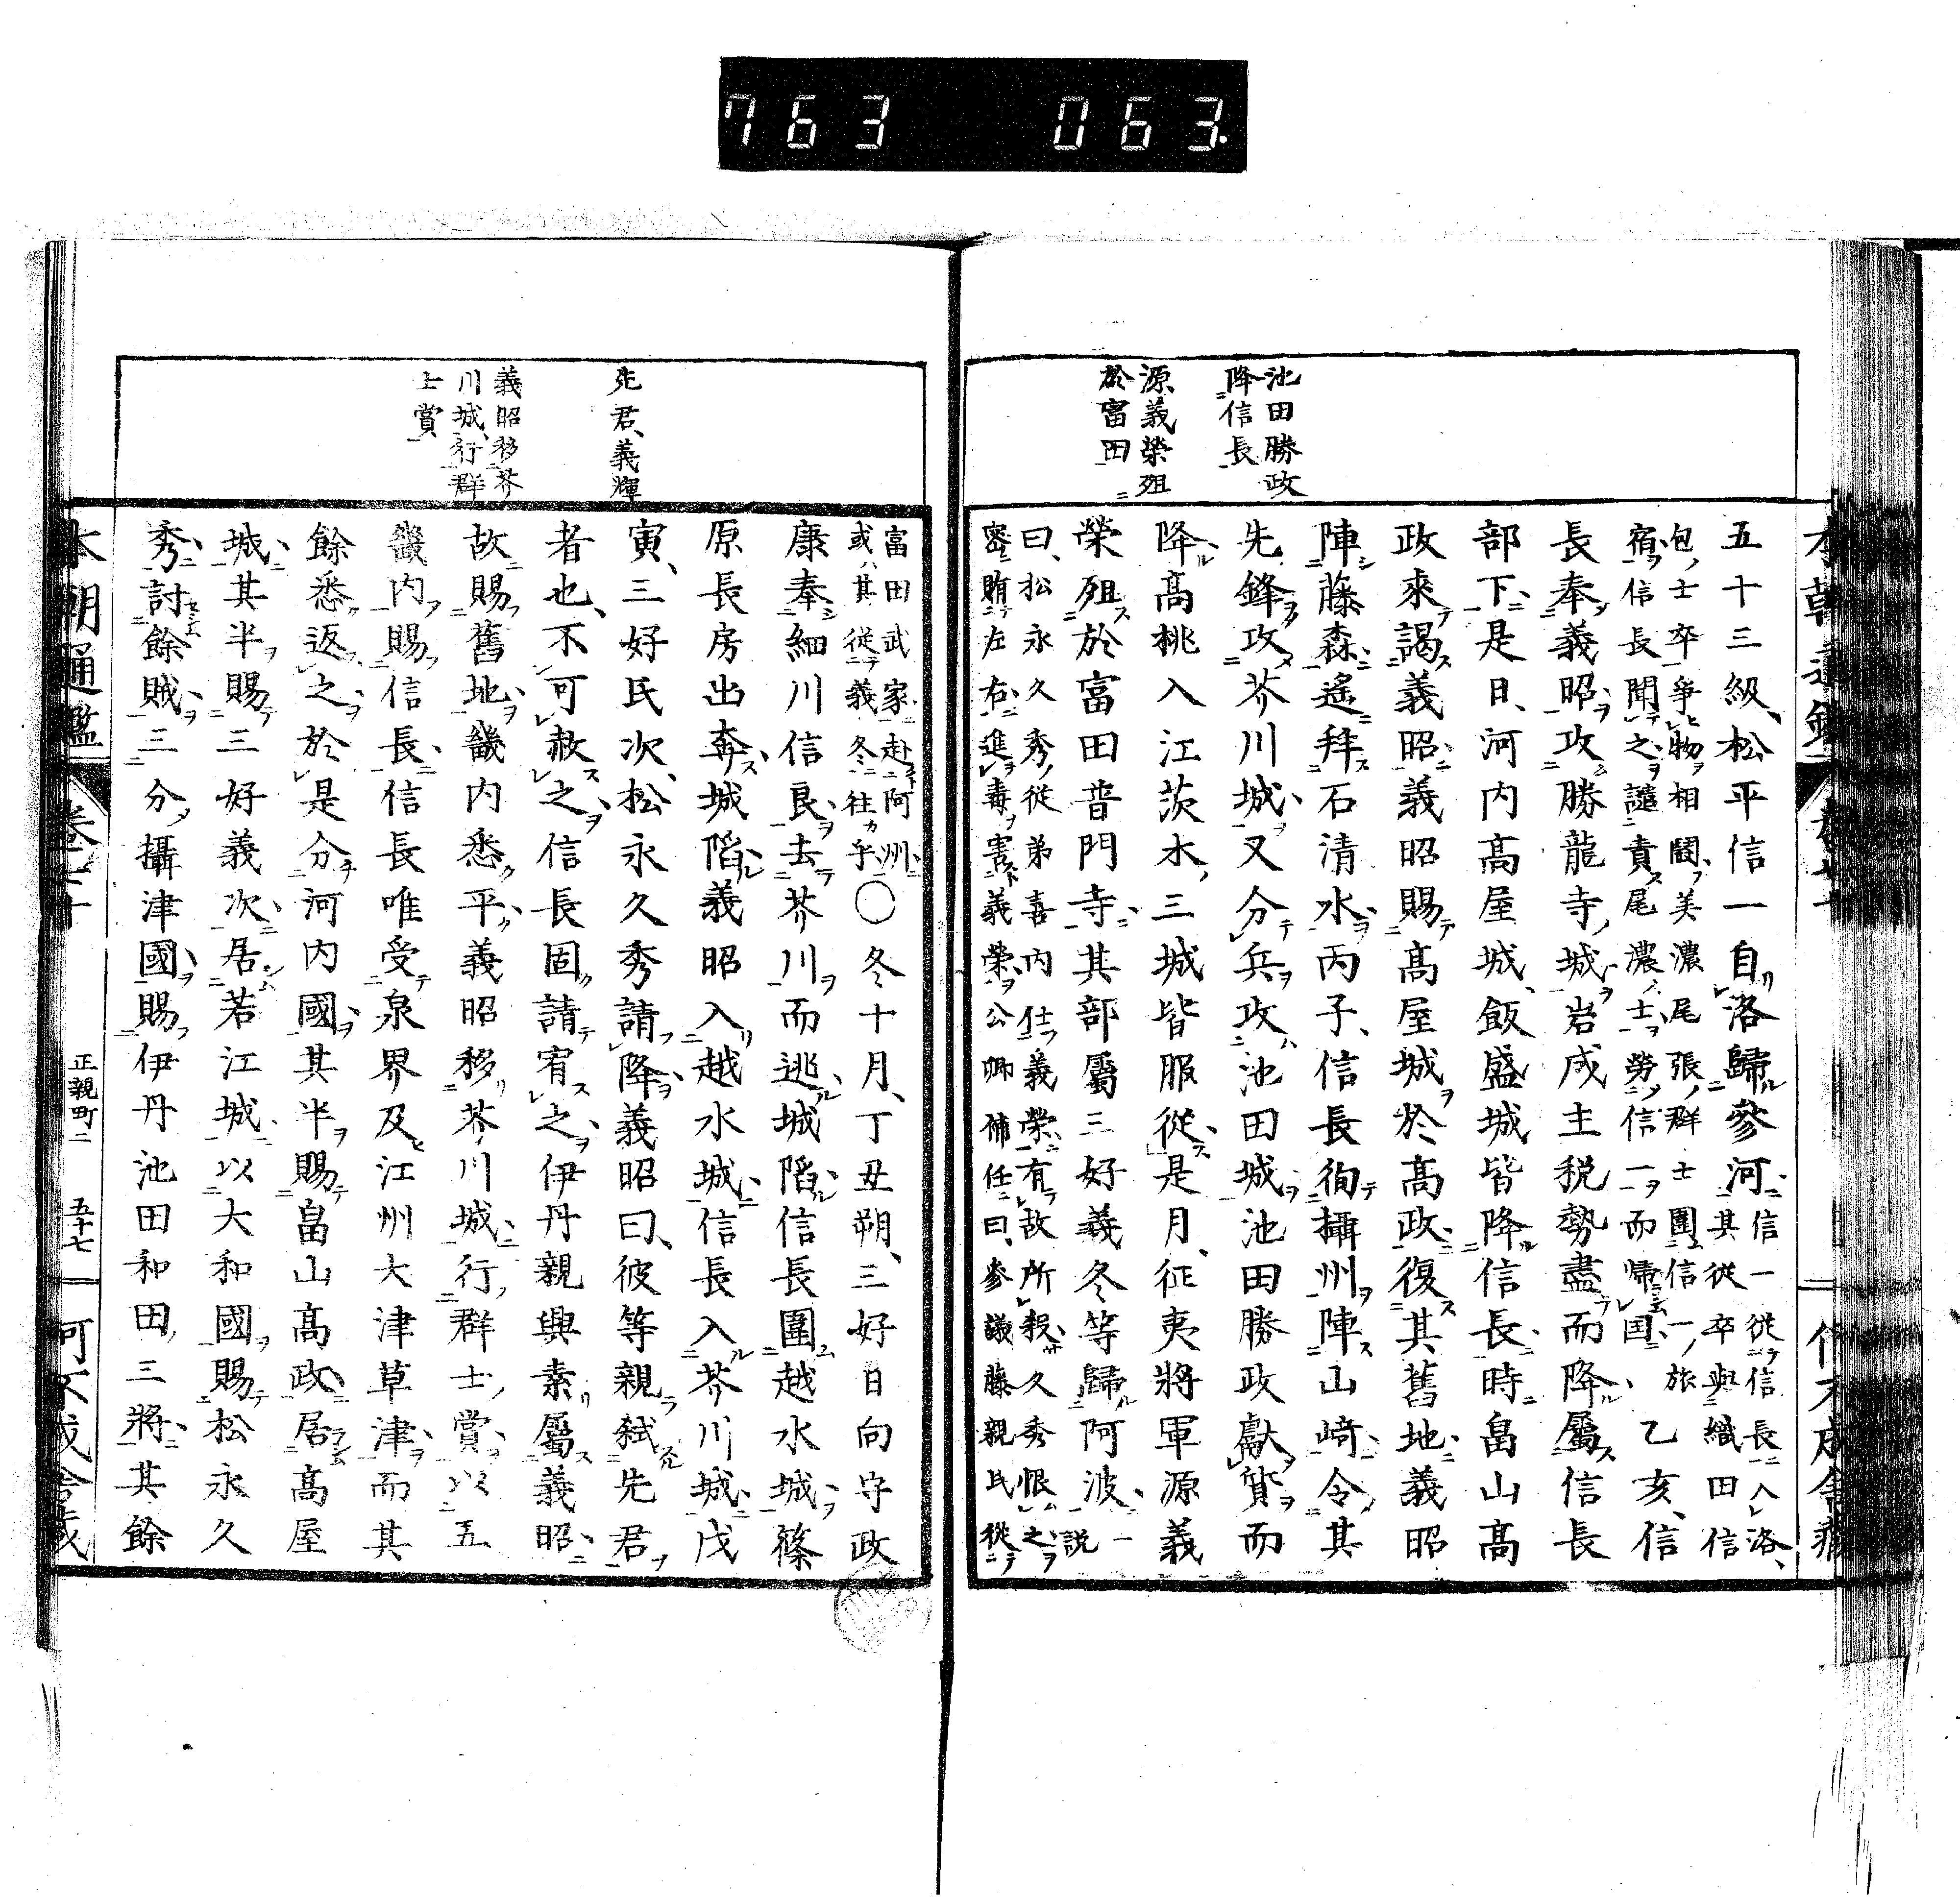 763 063.
池田勝政
降信長
源義榮殂
於富田
五十三級、松平信一自洛歸參河
信一從信長入洛、
其從卒與織田信
包士卒爭物相鬪美濃尾張群士圍信一旅
宿信長聞之譴責尾濃士勞信一而帰国
乙亥、信
長奉義昭攻勝龍寺城岩成主税勢盡而降屬信長
部下是日、河内高屋城、飯盛城皆降信長時畠山高
政來謁義昭義昭賜高屋城於高政復其舊地義昭
陣藤森遙拜石清水丙子、信長徇攝州陣山﨑令其
先鋒攻芥川城又分兵攻池田城池田勝政獻貨而
降高桃入江茨木三城皆服從是月、征夷將軍源義
榮殂於富田普門寺其部屬三好義冬等歸阿波
一
説
曰、松永久秀從弟喜内仕義榮有故所殺久秀恨之
密賄左右進毒害義榮公卿補任曰、參議藤親氏從
富田武家赴阿州
或其従義冬往乎
〇冬十月、丁丑朔、三好日向守政
康奉細川信良去芥川而逃城陷信長圍越水城篠
原長房出奔城陷義昭入越水城信長入芥川城戊
寅、三好氏次、松永久秀請降義昭曰、彼等親弑先君
者也、不可赦之信長固請宥之伊丹親興素屬義昭
故賜舊地畿内悉平義昭移芥川城行群士賞以五
畿内賜信長信長唯受泉界及江州大津草津而其
餘悉返之於是分河内國其半賜畠山高政居高屋
城其半賜三好義次居若江城以大和國賜松永久
秀討餘賊三分攝津國賜伊丹池田和田三將其餘
先君、義輝
義昭移芥
川城、行群
士賞
本朝通鑑
正親町二
五十七